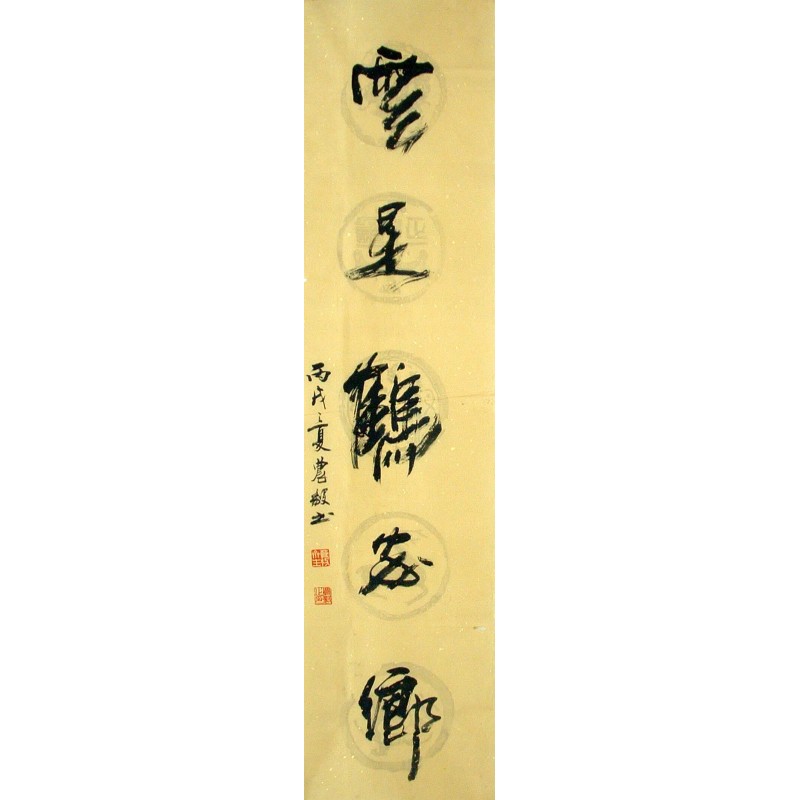 雲是鶴家鄉
丙戌之夏農殷书